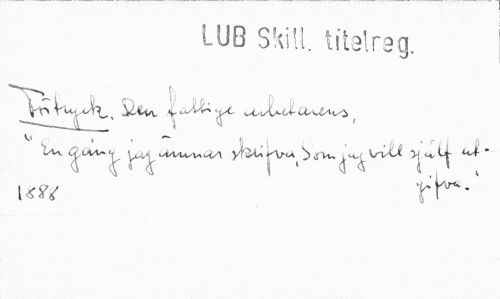 LUB Skill. titelreg.
Förtryck. Den fattige arbetarens,
"En gång jag ämnar skrifva, Som jag vill sjelf ut-
gifva."
1888